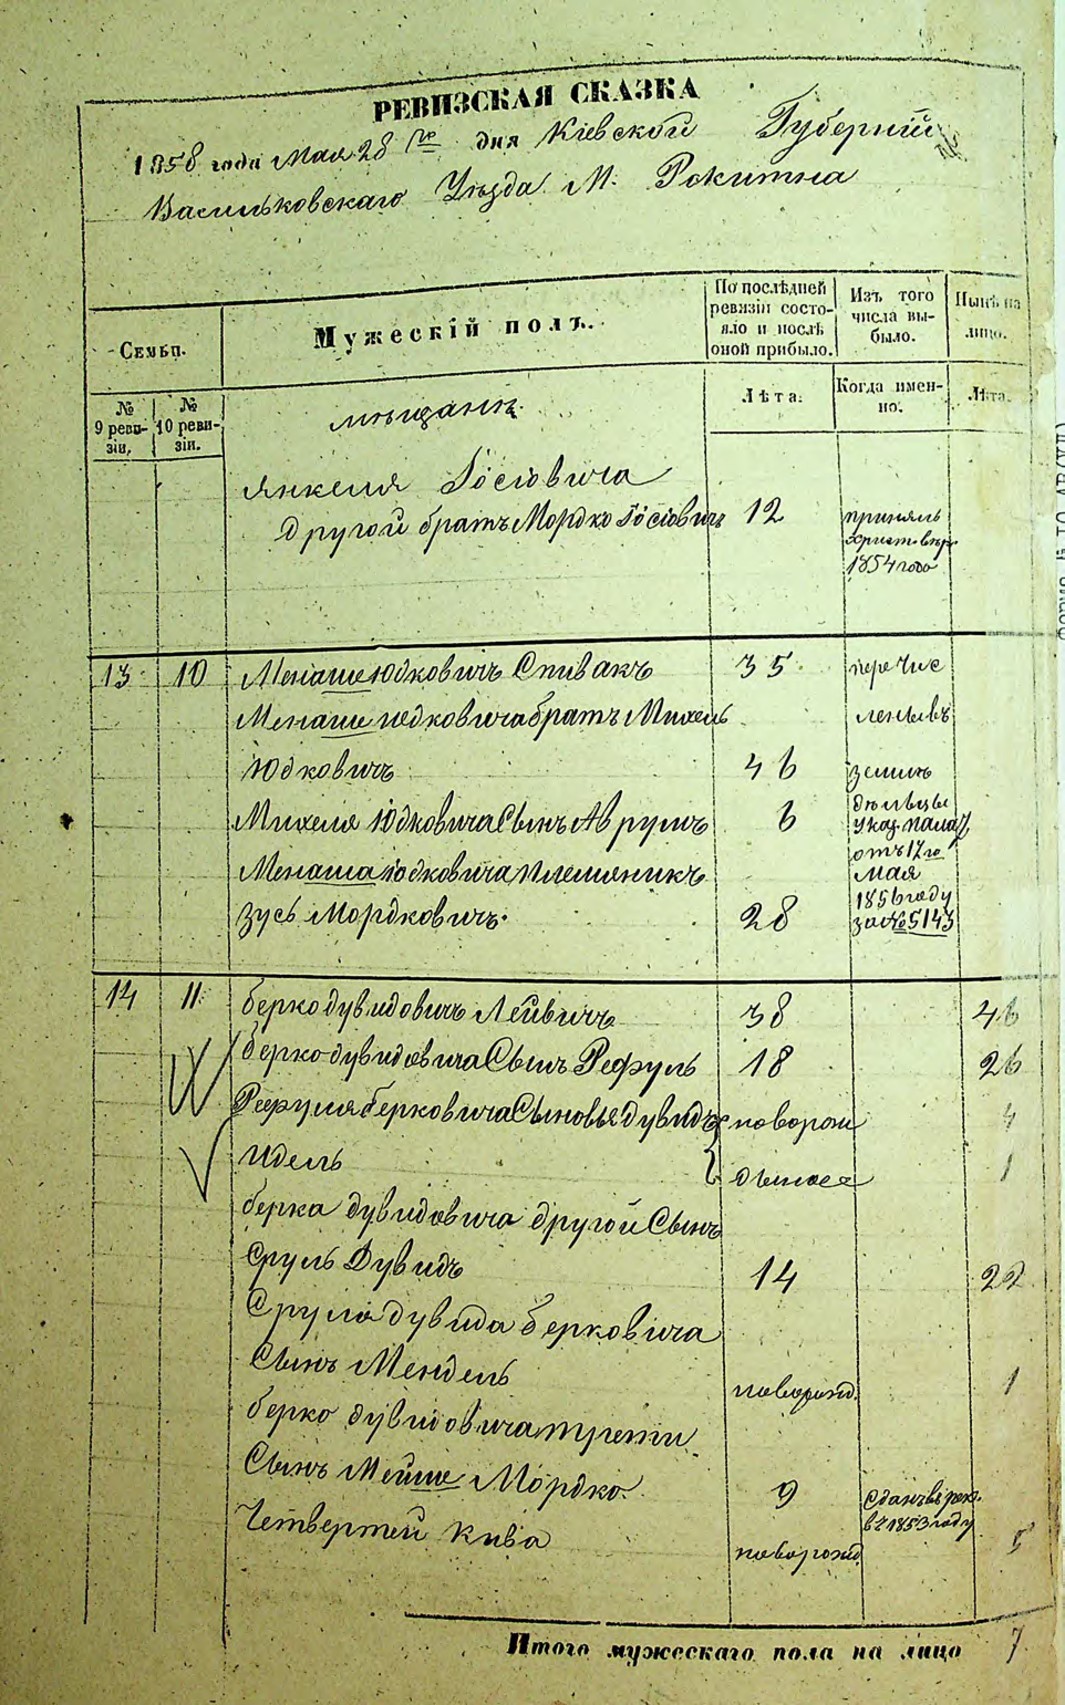 РЕВИЗСКАЯ СКАЗКА
1858 года Мая 28 го дня Кіевской Губерніи
Васильковскаго Уѣзда М. Рокитна
Семьи.
Мужескій полъ.
По послѣдней ревизіи состояло и послѣ оной прибыло.
Изъ того числа выбыло.
Нынѣ на лицо.
№ 9 ревизіи.
№ 10 ревизіи.
Лѣта.
Когда именно.
Лѣта.
мѣщанъ
Янкеля Іосіовича
другой братъ Мордко Іосіовичъ 12 принялъ
христ. вѣр.
1854 года
13 10 Менаше Юдковичъ Спивакъ 35 перечис
Менаше Юдковича братъ Михель ленъ въ
Юдковичъ 46 земле
Михеля Юдковича Сынъ Аврумъ 6 дѣльцы
указ. пала
отъ 17 го
Менаша Юдковича племяникъ мая
1856 году
Зусь Мордковичъ. 28 за № 5143
14 11 Берко Дувидовичъ Лейвичъ 38 46
Берко Дувидовича Сынъ Рефуль 18 26
Рефуля Берковича Сыновья Дувидъ новорож 4
Идель денные 1
Берка Дувидовича другой Сынъ
Сруль Дувидъ 14 22
Сруля Дувида Берковича
Сынъ Мендель новорожд. 1
Берко Дувидовича трети
Сынъ Мейше Мордко. 9 Сданъ въ рек.
въ 1853 году
Четвертей Кива новорожд. 5
Итого мужескаго пола на лицо 7